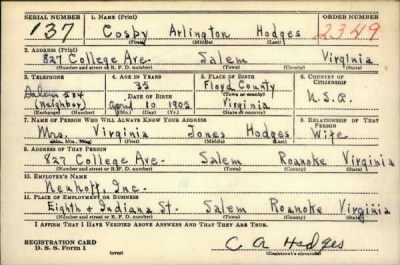 SERIAL NUMBER 1. NAME (Print) ORDER NUMBER
137 Cosby Arlington Hodges 2349
(First) (Middle) (Last)
2. ADDRESS (Print)
827 College Ave. Salem Virginia
(Number and street or R. F. D. number) (Town) (County) (State)
3. TELEPHONE 4. AGE IN YEARS 5. PLACE OF BIRTH 6. COUNTRY OF CITIZENSHIP
Salem 534 35 Floyd County
DATE OF BIRTH (Town or county)
(Neighbor) April 10 1905 Virginia U.S.A.
(Exchange) (Number) (Mo.) (Day) (Yr.) (State or country)
7. NAME OF PERSON WHO WILL ALWAYS KNOW YOUR ADDRESS 8. RELATIONSHIP OF THAT PERSON
Mrs. Virginia Jones Hodges Wife
(Mr., Mrs., Miss) (First) (Middle) (Last)
9. ADDRESS OF THAT PERSON
827 College Ave. Salem Roanoke Virginia
(Number and street or R. F. D. number) (Town) (County) (State)
10. EMPLOYER'S NAME
Neuhoff, Inc.
11. PLACE OF EMPLOYMENT OR BUSINESS
Eighth & Indiana St. Salem Roanoke Virginia
(Number and street or R. F. D. number) (Town) (County) (State)
I AFFIRM THAT I HAVE VERIFIED ABOVE ANSWERS AND THAT THEY ARE TRUE.
REGISTRATION CARD
D. S. S. Form 1 C. A. Hodges
(over) (Registrant's signature)